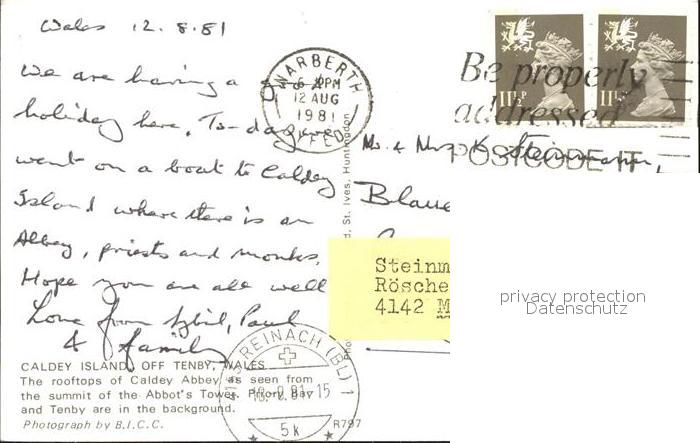 Wales 12.8.81
We are having a good
holiday here. To-day we
went on a boat to Caldey
Island where there is an
Abbey, priests and monks.
Hope you are all well
Love from Sybil, Paul
& family
CALDEY ISLAND, OFF TENBY, WALES
The rooftops of Caldey Abbey as seen from
the summit of the Abbot's Tower. Priory Bay
and Tenby are in the background.
Photograph by B.I.C.C.
R797
NARBERTH
6 PM
12 AUG
1981
DYFED
d, St. Ives, Huntingdon
Pho
11½P
11½P
Be properly
addressed
POSTCODE IT
Mr. & Mrs. K. Steinmann,
Blaue
Steinm
Rösche
4142 M
REINACH (BL) 1
81-15
5k
privacy protection
Datenschutz